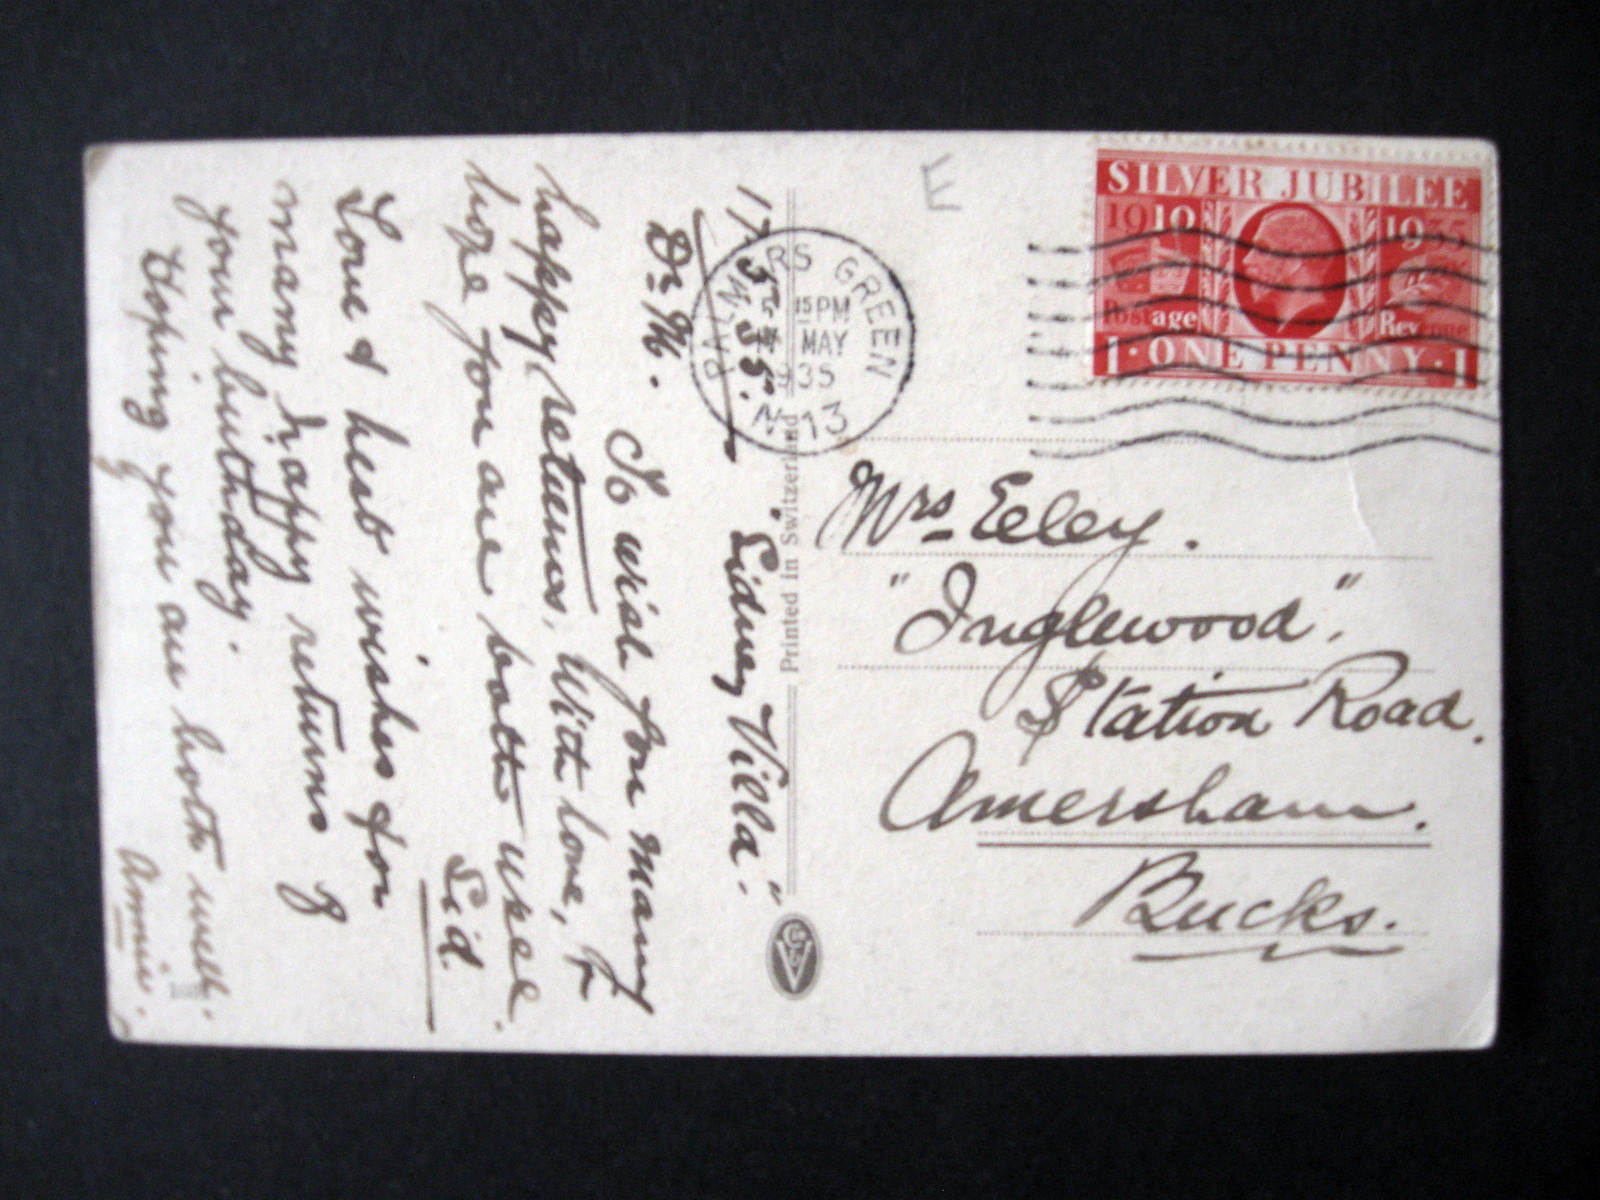 E
SILVER JUBILEE
1910 1935
Postage Revenue
1·ONE PENNY·1
PALMERS GREEN
15 PM
MAY
1935
N·13
Mrs Eeley.
"Inglewood".
Station Road.
Amersham.
Bucks.
Printed in Switzerland
"Sidney Villa".
17.5.35.
Dr M.
To wish you many
happy returns. With love, &
hope you are both well.
Sid.
Love & best wishes for
many happy returns of
your birthday.
Hoping you are both well.
Annie.